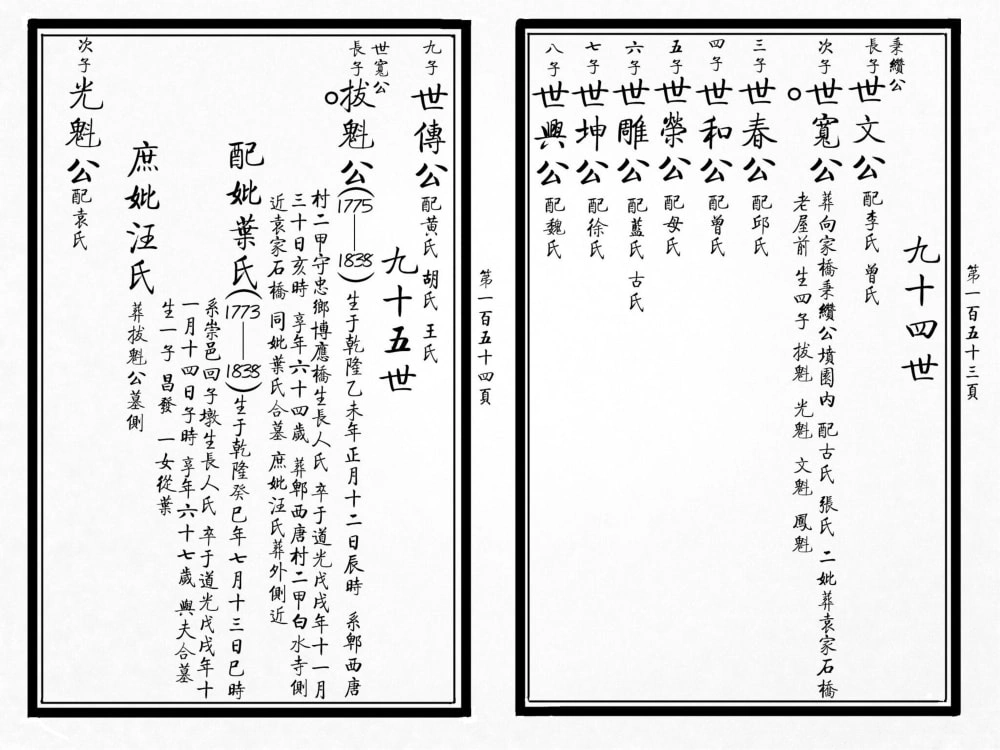 第一百五十三頁
九十四世
秉纘公
長子世文公 配李氏 曾氏
次子世寬公 葬向家橋秉纘公墳園內 配古氏 張氏 二妣葬袁家石橋
老屋前 生四子 拔魁 光魁 文魁 鳳魁
三子世春公 配邱氏
四子世和公 配曾氏
五子世榮公 配母氏
六子世雕公 配藍氏 古氏
七子世坤公 配徐氏
八子世興公 配魏氏
第一百五十四頁
九子世傳公 配黃氏 胡氏 王氏
九十五世
世寬公
長子拔魁公(1775—1838) 生于乾隆乙未年正月十二日辰時 系郫西唐
村二甲守忠鄉博應橋生長人氏 卒于道光戊戌年十一月
三十日亥時 享年六十四歲 葬郫西唐村二甲白水寺側
近袁家石橋 同妣葉氏合墓 庶妣汪氏葬外側近
配妣葉氏(1773—1838) 生于乾隆癸巳年七月十三日巳時
系崇邑回子墩生長人氏 卒于道光戊戌年十
一月十四日子時 享年六十七歲 與夫合墓
生一子 昌發 一女從葉
庶妣汪氏 葬拔魁公墓側
次子光魁公 配袁氏